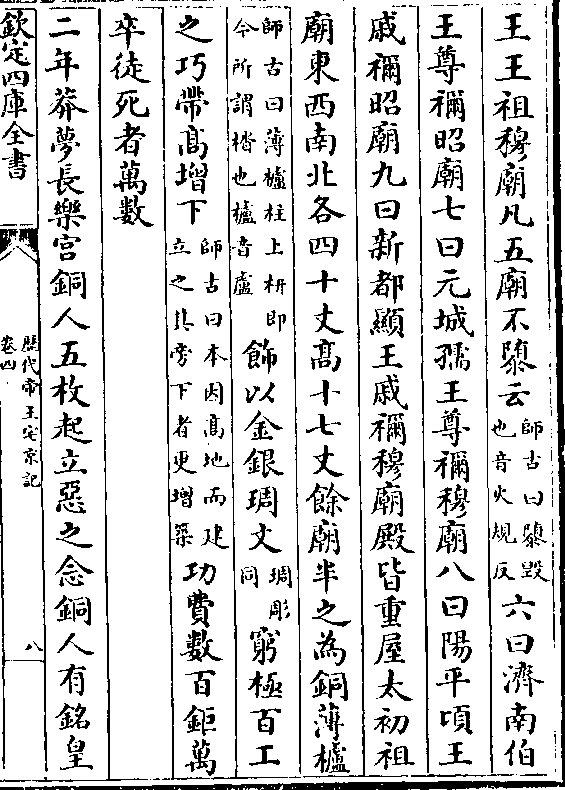 王王祖穆廟凡五廟不隳云師古曰隳毀也音火規反六曰濟南伯
王尊禰昭廟七曰元城孺王尊禰穆廟八曰陽平頃王
戚禰昭廟九曰新都顯王戚禰穆廟殿皆重屋太初祖
廟東西南北各四十丈高十七丈餘廟半之為銅薄櫨
師古曰薄櫨柱上枅即今所謂楷也櫨音盧飾以金銀琱文琱彫同窮極百工
之巧帶髙增下師古曰本因髙地而建立之其旁下者更增築功費數百鉅萬
卒徒死者萬數
二年莽夢長樂宫銅人五枚起立惡之念銅人有銘皇
欽定四庫全書
歴代帝王宅京記
卷四
八